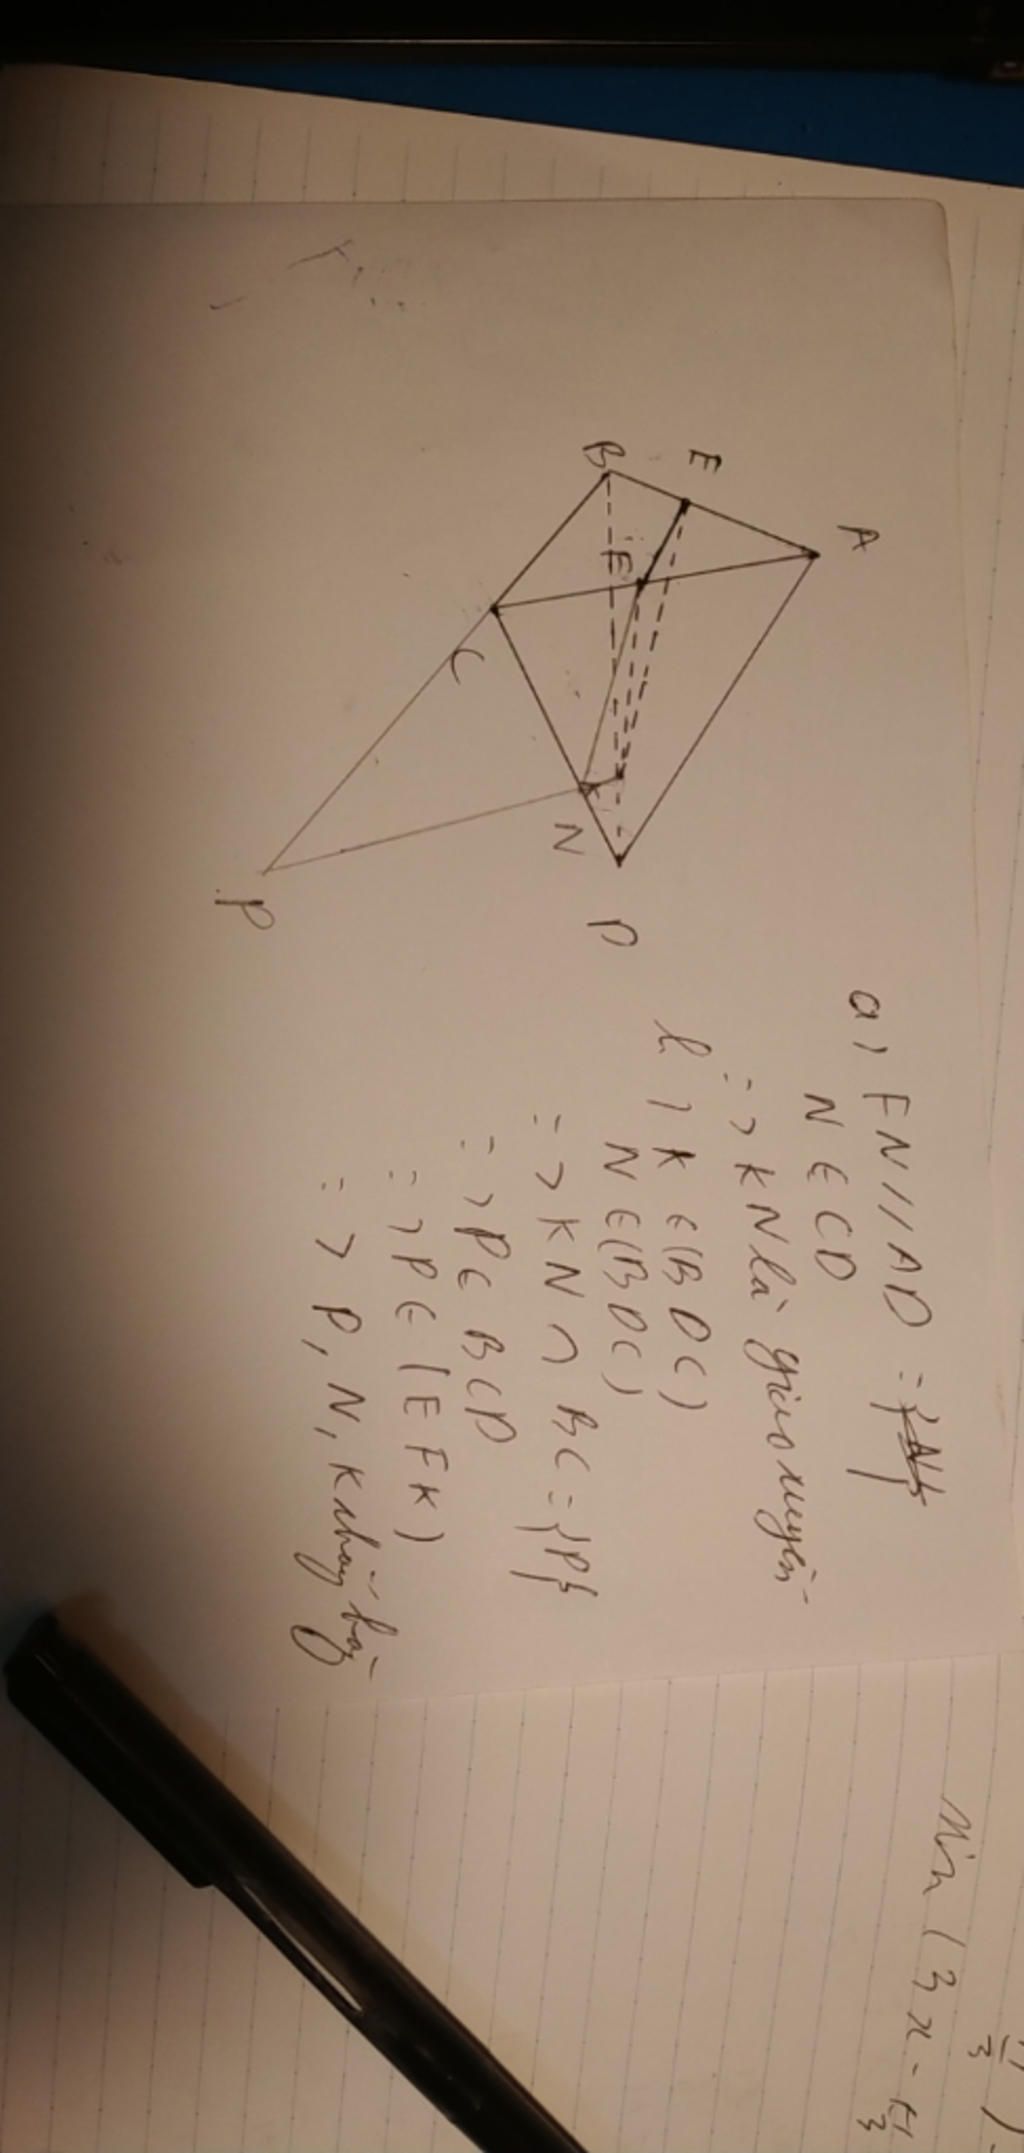 A
E
B
E
C
N
D
P
a) FN // AD =
N ∈ CD
=> KN là giao tuyến
b) K ∈ (BDC)
N ∈ (BDC)
=> KN ∩ BC = {P}
=> P ∈ BCD
=> P ∈ (EFK)
=> P, N, K thẳng hàng
Min (3x - π/3